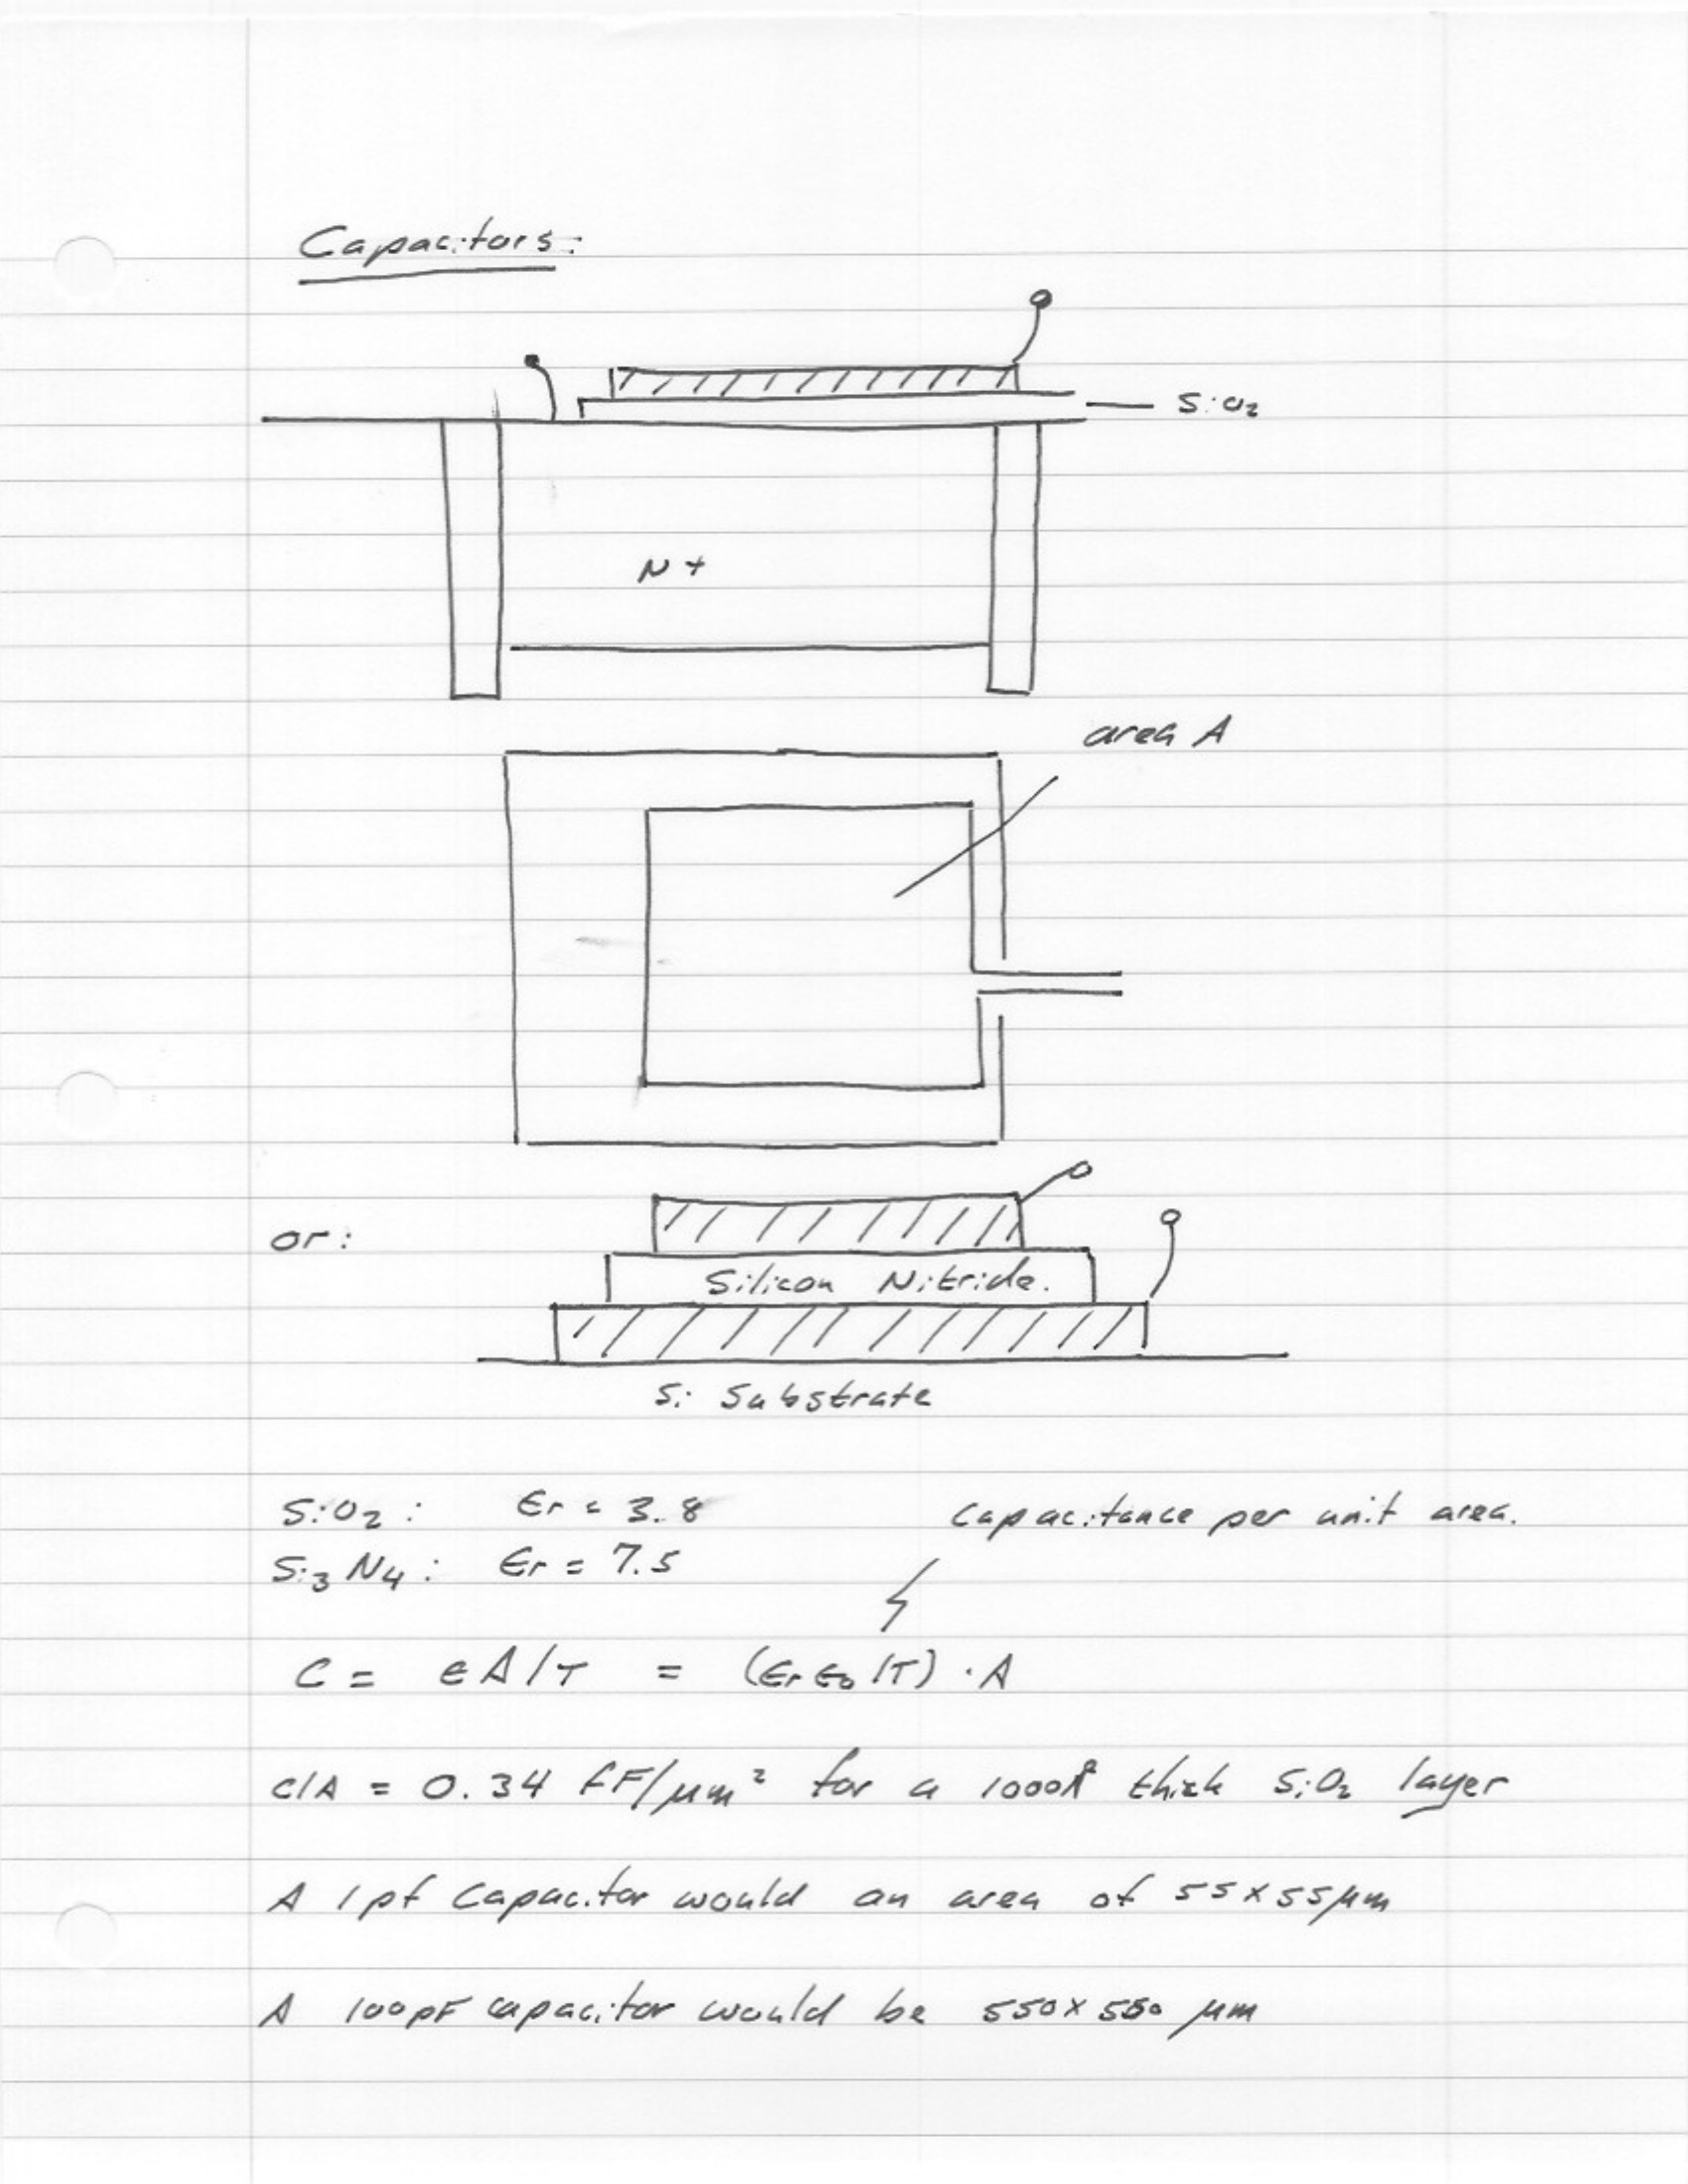 Capacitors:
SiO₂
N+
area A
or:
Silicon Nitride.
Si Substrate
SiO₂: Er = 3.8
Capacitance per unit area.
Si₃N₄: Er = 7.5
C = eA/T = (ErEo/T) · A
C/A = 0.34 fF/μm² for a 1000Å thick SiO₂ layer
A 1pf Capacitor would an area of 55x55μm
A 100pF capacitor would be 550x550 μm